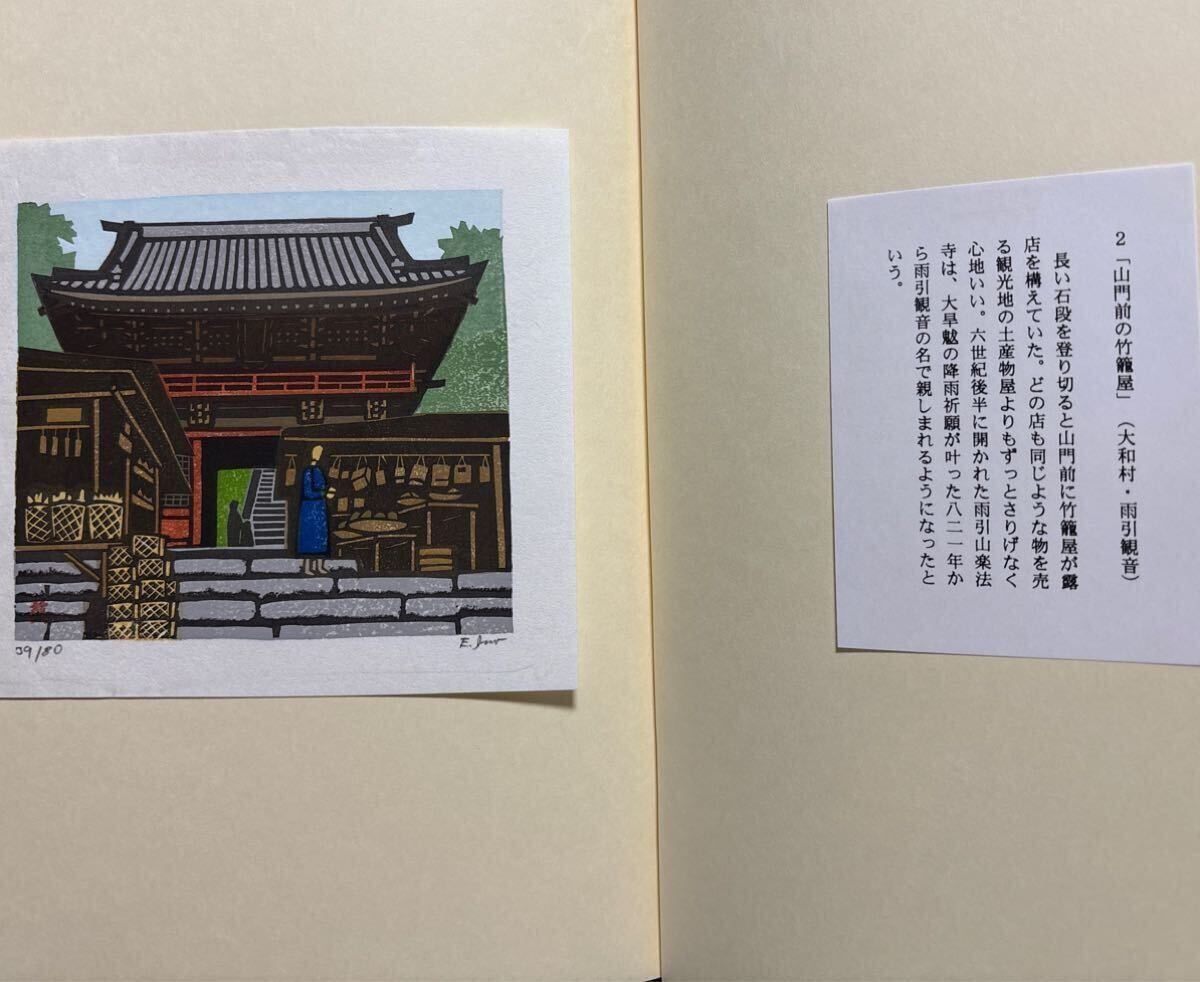 2「山門前の竹籠屋」（大和村・雨引観音）
長い石段を登り切ると山門前に竹籠屋が露
店を構えていた。どの店も同じような物を売
る観光地の土産物屋よりもずっとさりげなく
心地いい。六世紀後半に開かれた雨引山楽法
寺は、大旱魃の降雨祈願が叶った八二一年か
ら雨引観音の名で親しまれるようになったと
いう。
39/80